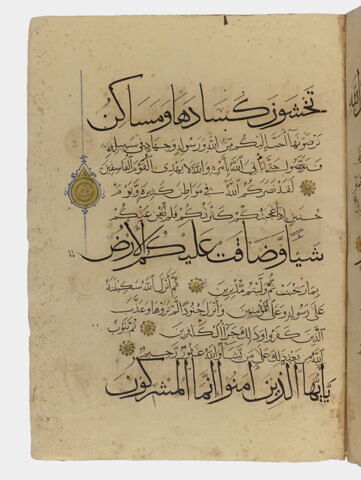 تخشون كسادها ومساكن
ترضونها أحب إليكم من الله ورسوله وجهاد في سبيله
فتربصوا حتى يأتي الله بأمره والله لا يهدي القوم الفاسقين
لقد نصركم الله في مواطن كثيرة ويوم
حنين إذ أعجبتكم كثرتكم فلم تغن عنكم
شيئا وضاقت عليكم الأرض
بما رحبت ثم وليتم مدبرين ثم أنزل الله سكينته
على رسوله وعلى المؤمنين وأنزل جنودا لم تروها وعذب
الذين كفروا وذلك جزاء الكافرين ثم يتوب
الله من بعد ذلك على من يشاء والله غفور رحيم
يا أيها الذين آمنوا إنما المشركون